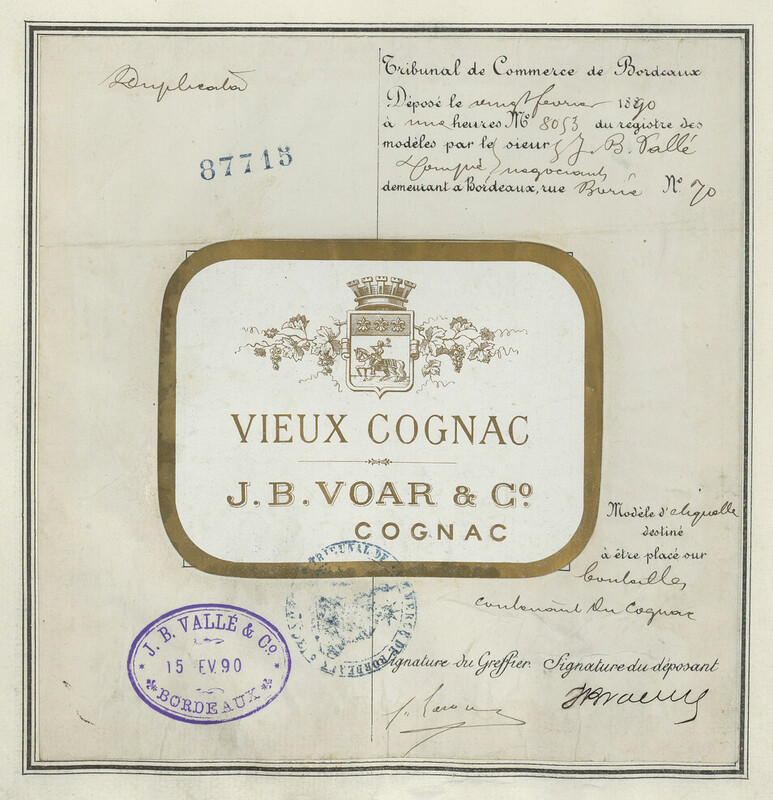 Duplicata
87715
Tribunal de Commerce de Bordeaux
Déposé le vingt février 1890
à une heures No 8053 du registre des
modèles par le sieurs J. B. Vallé
négociants
demeurant à Bordeaux, rue Borie No. 70
VIEUX COGNAC
J. B. VOAR & Co
COGNAC
Modèle d'étiquette
destiné
à être placé sur
bouteilles
contenant du Cognac
TRIBUNAL DE COMMERCE DE BORDEAUX
J. B. VALLÉ & Co.
15 EV. 90
BORDEAUX
Signature du Greffier. Signature du déposant